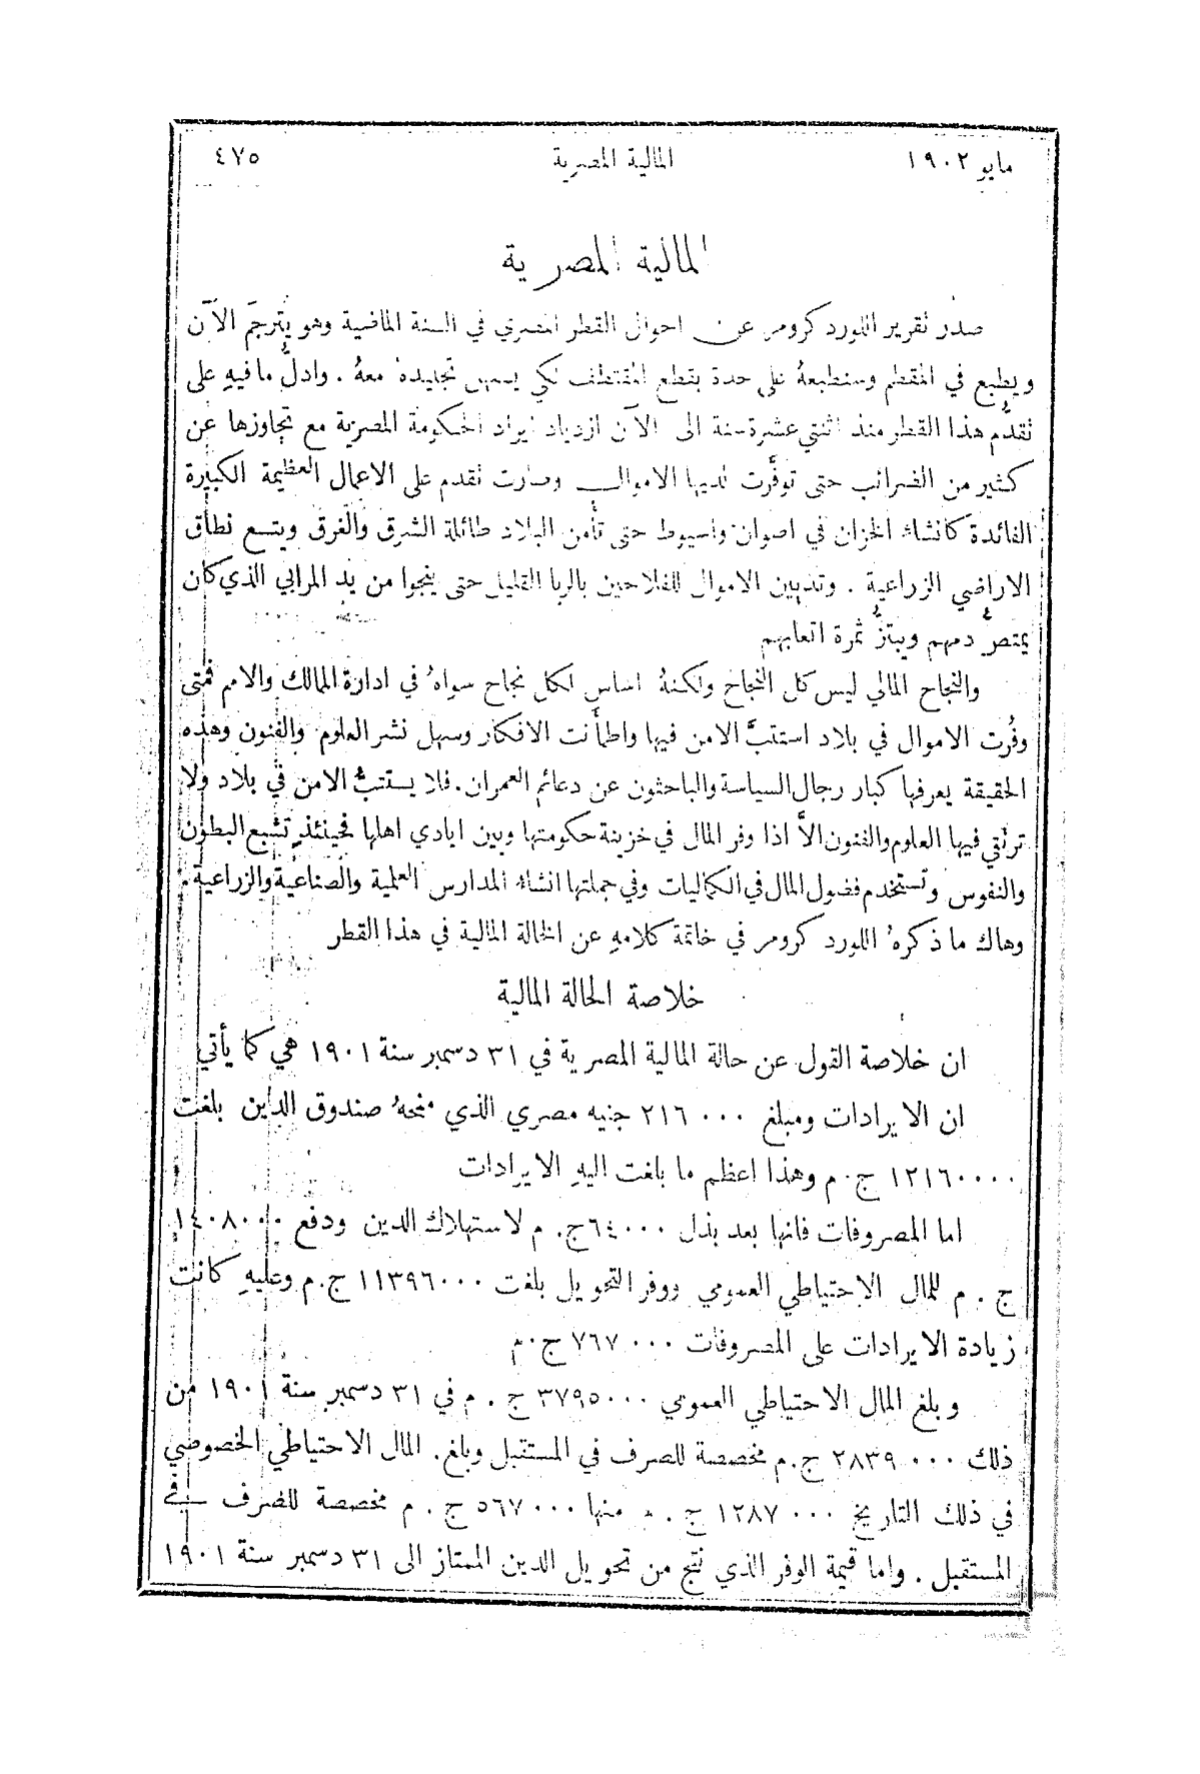 مايو ١٩٠٢ المالية المصرية ٤٧٥
المالية المصرية
صدر تقرير اللورد كرومر عن احوال القطر المصري في السنة الماضية وهو يُترجَم الآن
ويطبع في المقطم وسنطبعهُ على حدة بقطع المقتطف لكي يسهل تجليدهُ معهُ . وادلُّ ما فيهِ على
تقدُّم هذا القطر منذ اثنتي عشرة سنة الى الآن ازدياد ايراد الحكومة المصرية مع تجاوزها عن
كثير من الضرائب حتى توفَّرت لديها الاموال وصارت تقدم على الاعمال العظيمة الكبيرة
الفائدة كانشاء الخزان في اصوان واسيوط حتى تأمن البلاد طائلة الشرق والغرق ويتسع نطاق
الاراضي الزراعية . وتديين الاموال للفلاحين بالربا القليل حتى ينجوا من يد المرابي الذي كان
يمتصُّ دمهم ويبتزُّ ثمرة اتعابهم
والنجاح المالي ليس كل النجاح ولكنهُ اساس لكل نجاح سواهُ في ادارة المالك والامم فمتى
وفُرت الاموال في بلاد استتبَّ الامن فيها واطمأنت الافكار وسهل نشر العلوم والفنون وهذه
الحقيقة يعرفها كبار رجال السياسة والباحثون عن دعائم العمران . فلا يستتبُّ الامن في بلاد ولا
ترتقي فيها العلوم والفنون الاَّ اذا وفر المال في خزينة حكومتها وبين ايادي اهلها فحينئذٍ تشبع البطون
والنفوس وتستخدم فضول المال في الكماليات وفي جملتها انشاء المدارس العلمية والصناعية والزراعية .
وهاك ما ذكرهُ اللورد كرومر في خاتمة كلامهِ عن الحالة المالية في هذا القطر
خلاصة الحالة المالية
ان خلاصة القول عن حالة المالية المصرية في ٣١ دسمبر سنة ١٩٠١ هي كما يأتي
ان الايرادات ومبلغ ٢١٦٠٠٠ جنيه مصري الذي منحهُ صندوق الدين بلغت
١٢١٦٠٠٠٠ ج . م وهذا اعظم ما بلغت اليهِ الايرادات
اما المصروفات فانها بعد بذل ٦٤٠٠٠ ج . م لاستهلاك الدين ودفع ١٤٠٨٠٠٠
ج . م للمال الاحتياطي العمومي ووفر التحويل بلغت ١١٣٩٦٠٠٠ ج . م وعليهِ كانت
زيادة الايرادات على المصروفات ٧٦٧٠٠٠ ج . م
وبلغ المال الاحتياطي العمومي ٣٧٩٥٠٠٠ ج . م في ٣١ دسمبر سنة ١٩٠١ من
ذلك ٢٨٣٩٠٠٠ ج . م مخصصة للصرف في المستقبل وبلغ . المال الاحتياطي الخصوصي
في ذلك التاريخ ١٢٨٧٠٠٠ ج . م منها ٥٦٧٠٠٠ ج . م مخصصة للصرف في
المستقبل . واما قيمة الوفر الذي نتج من تحويل الدين الممتاز الى ٣١ دسمبر سنة ١٩٠١